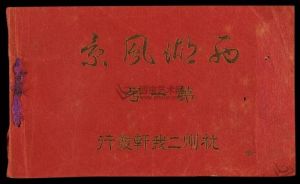 西湖風景
杭州二我軒發行